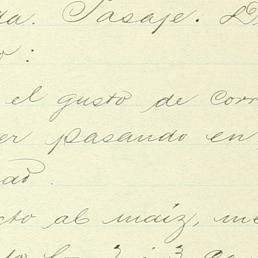 da. Pasaje. D
o:
el gusto de corr
er pasando en
dad.
cto al maiz, me
2 i 3